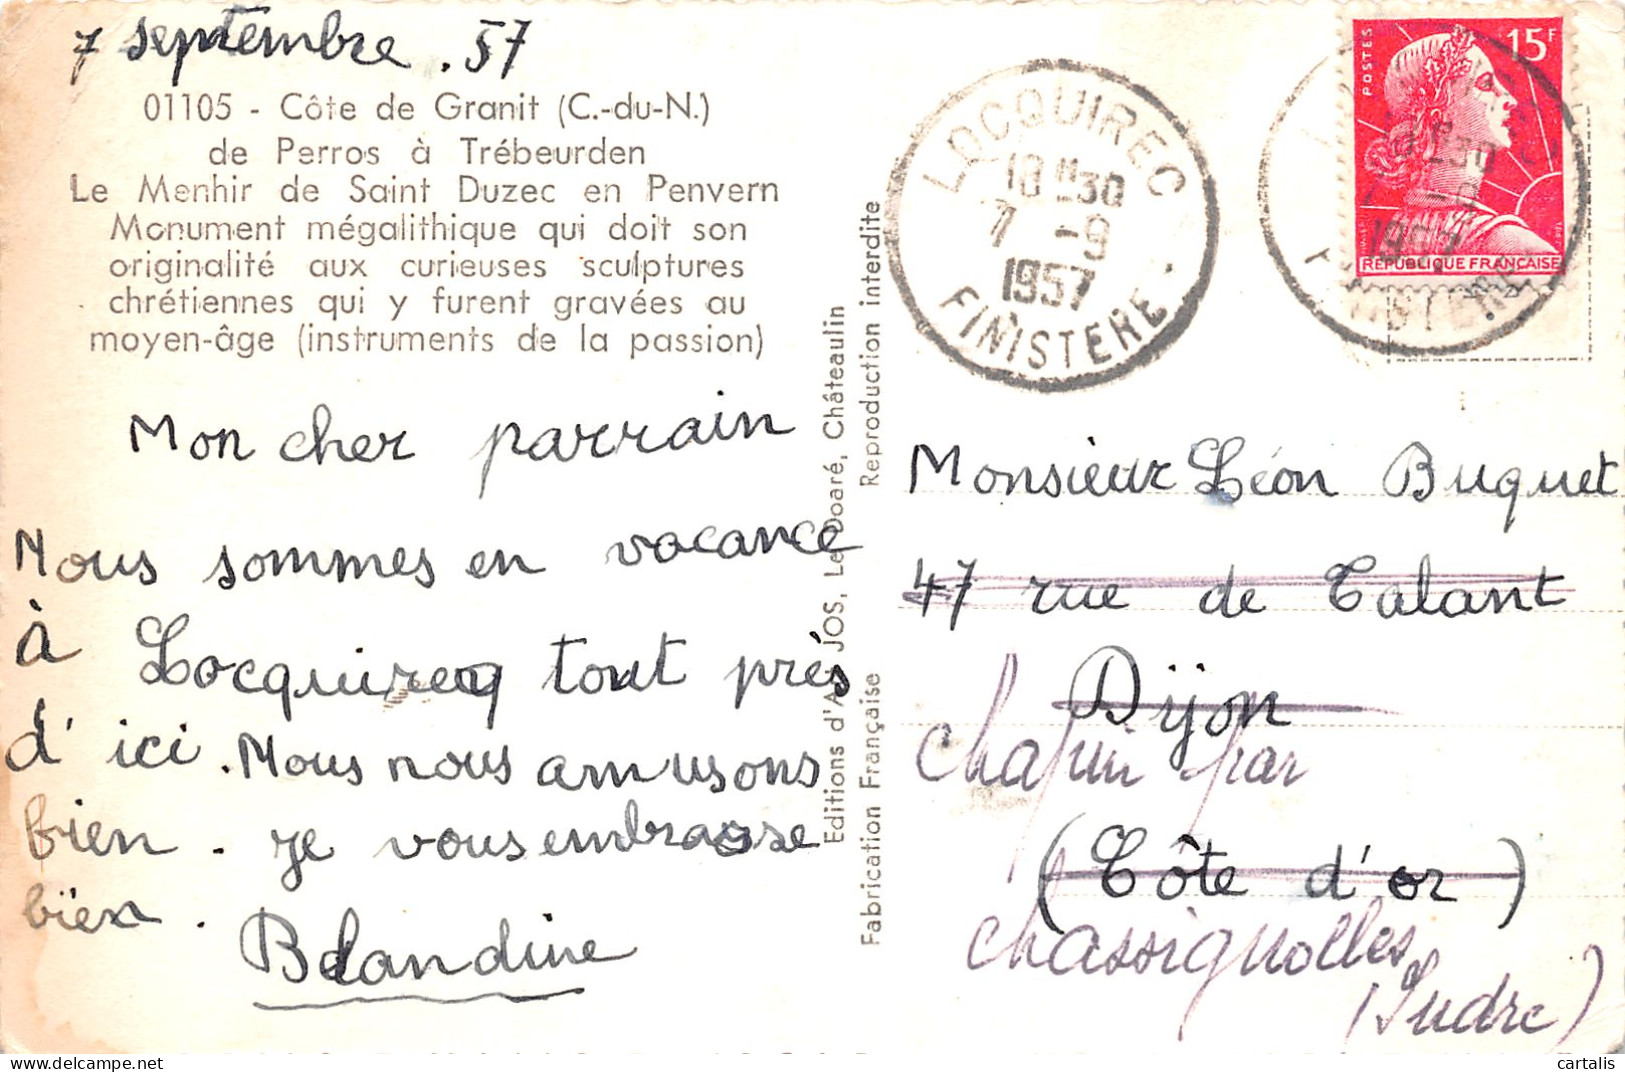 7 septembre. 57
01105 - Côte de Granit (C.-du-N.)
de Perros à Trébeurden
Le Menhir de Saint Duzec en Penvern
Monument mégalithique qui doit son
originalité aux curieuses sculptures
chrétiennes qui y furent gravées au
moyen-âge (instruments de la passion)
Mon cher parrain
Nous sommes en vacance
à Locquirecq tout près
d'ici. Nous nous amusons
bien. je vous embrasse
bien.
Blandine
Editions d'Art JOS, Le Doaré, Châteaulin
Fabrication Française
Reproduction interdite
LOCQUIREC
18H30
7 -9
1957
FINISTERE
POSTES
15F
REPUBLIQUE FRANÇAISE
18H30
7 -9
1957
FINISTERE
Monsieur Léon Buquet
47 rue de Talant
Dijon
par
(Côte d'or)
chassignolles
(Indre)
cartalis